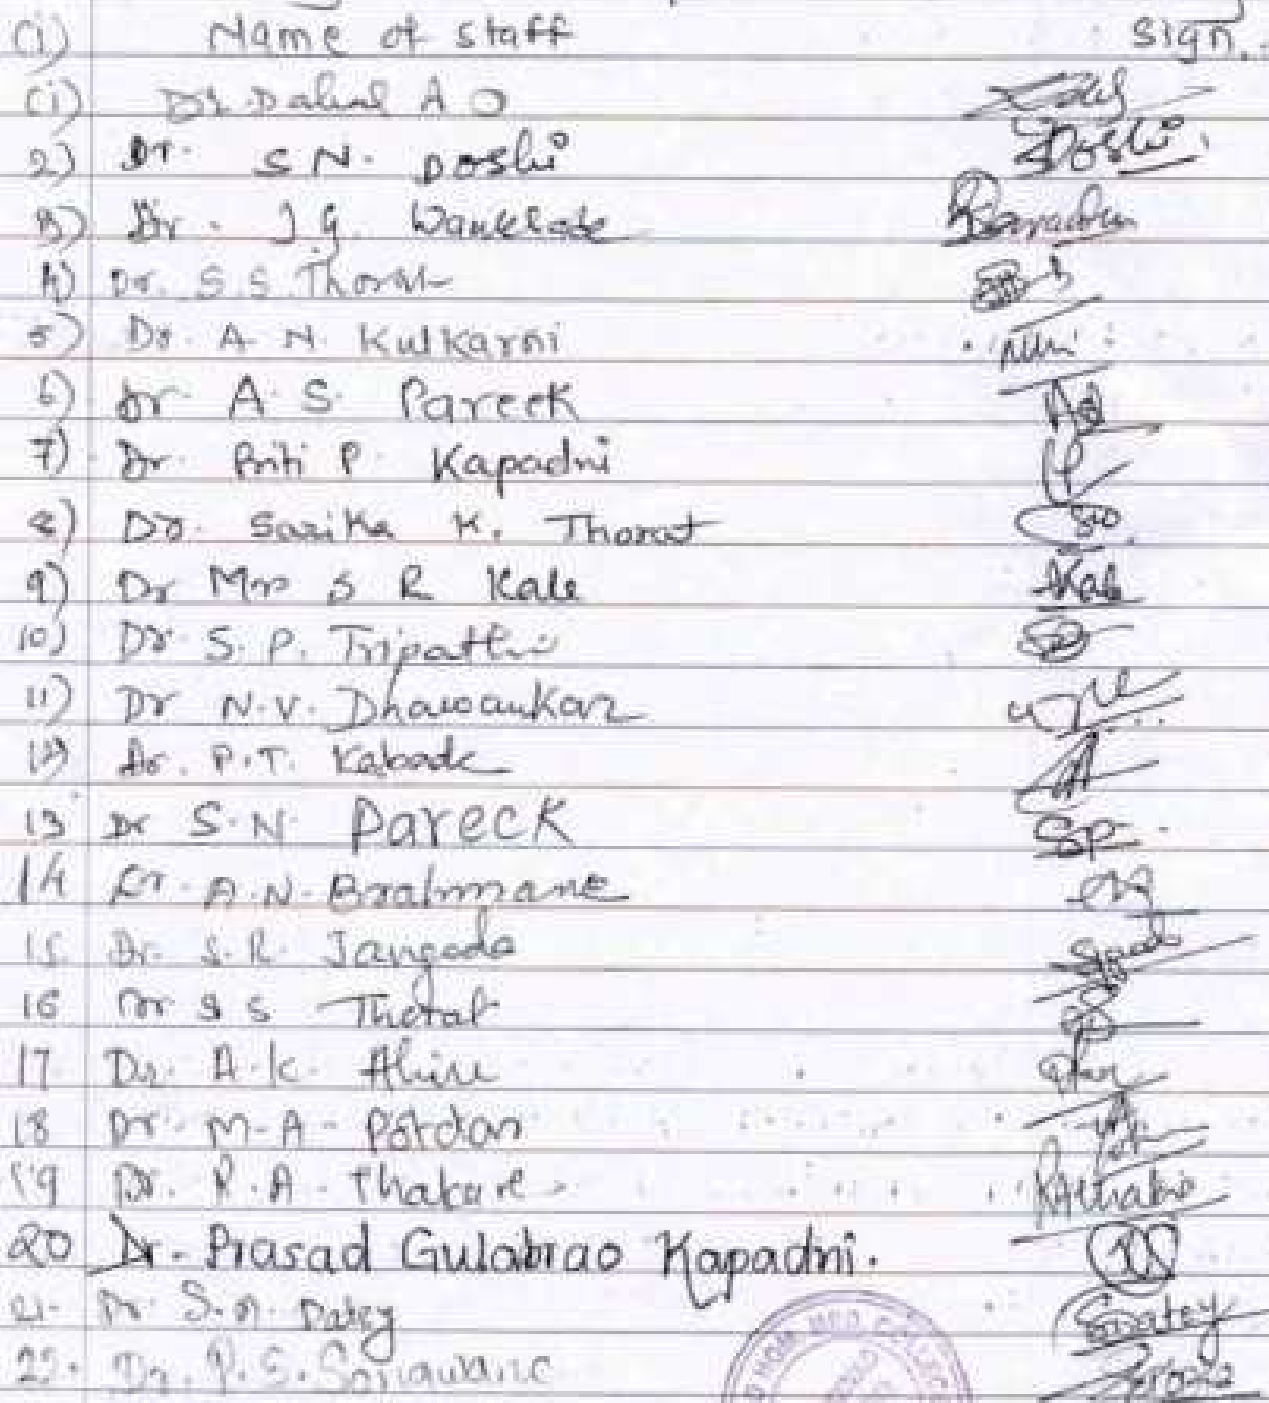 (i) Name of staff sign.
(i) Dr. Dahal A O
2) Dr. S N. Doshi Doshi
3) Dr. J G. Wankhade
4) Dr. S. S. Thorat
5) Dr. A. N. Kulkarni
6) Dr. A. S. Pareek
7) Dr. Priti P. Kapadni
8) Dr. Sarika K. Thorat
9) Dr Mrs S R Kale Kale
10) Dr S. P. Tripathi
11) Dr N.V. Dhawankar
12) Dr. P.T. Kabade
13 Dr S.N. Pareck SP
14 Dr. A.N. Brahmane
15. Dr. S.R. Jangada
16 Dr S S Thorat
17 Dr. A.K. Ahire
18 Dr. M.A. Potdar
19 Dr. R.A. Thakare RAThakre
20 Dr. Prasad Gulabrao Kapadni.
21. Dr. S.A. Datey SDatey
22. Dr. P.S. Sonawane
HOM. MED. COLLEGE